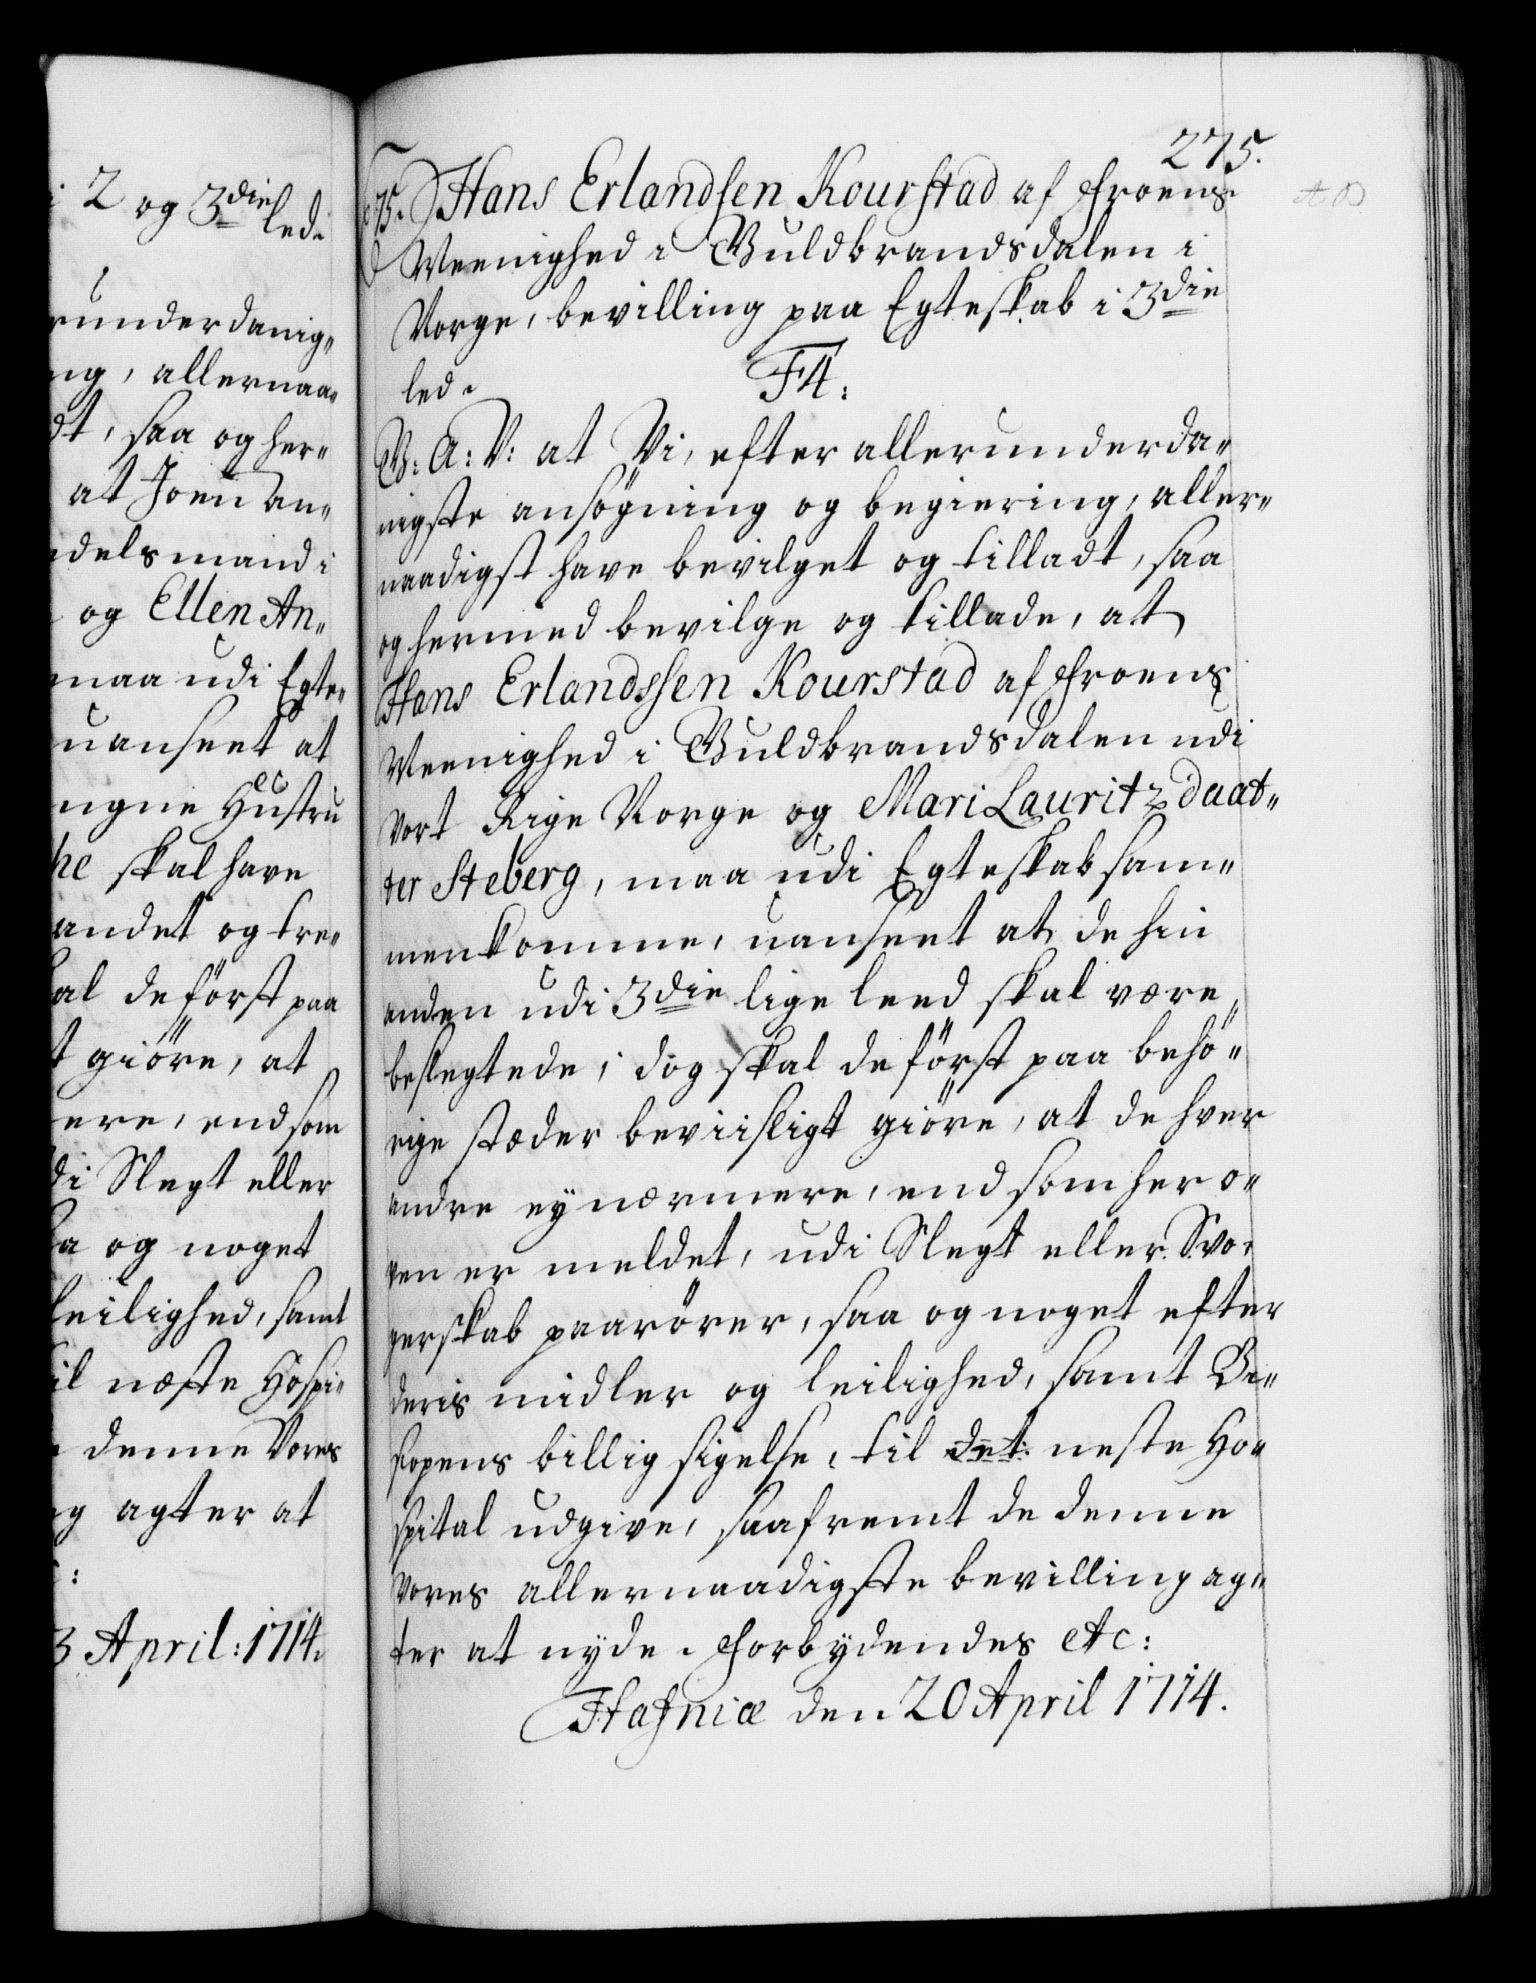 i 2 og 3die led.
runderdanig„
ng, allernaa„
dt, saa og her„
at Joen An„
ndelsmand i
og Ellen An„
maa udi Egte„
uanseet at
ngne Hustru
he skal have
andet og tre„
al de först paa
t giöre, at
ere, end som
di Slegt eller
a og noget
leilighed, samt
til næste Hospi„
denne Vores
g agter at
:
3 April: 1714.
275.
75. Hans Erlandsen Kourstad af Froens
Meenighed i Guldbrandsdalen i
Norge, bevilling paa Egteskab i 3die
led. F4:
G: A: V: at Vi, efter allerunderda„
nigste ansögning og begiering, aller„
naadigst have bevilget og tilladt, saa
og hermed bevilge og tillade, at
Hans Erlandssen Kourstad af Froens
Meenighed i Guldbrandsdalen udi
Vort Rige Norge og Mari Lauritzdaat„
ter Steberg, maa udi Egteskab sam„
menkomme, uanseet at de hin
anden udi 3die lige leed skal være
beslegtede; dog skal de först paa behö„
rige stæder beviisligt giöre, at de hver
andre ey nærmere, end som her o„
ven er meldet, udi Slegt eller Svo„
gerskab paarörer, saa og noget efter
deris midler og leilighed, samt Bi„
skopens billig sigelse, til det neste Ho„
spital udgive, saafremt de denne
Vores allernaadigste bevilling ag„
ter at nyde. Forbydendes etc:
Hafniæ den 20 April 1714.